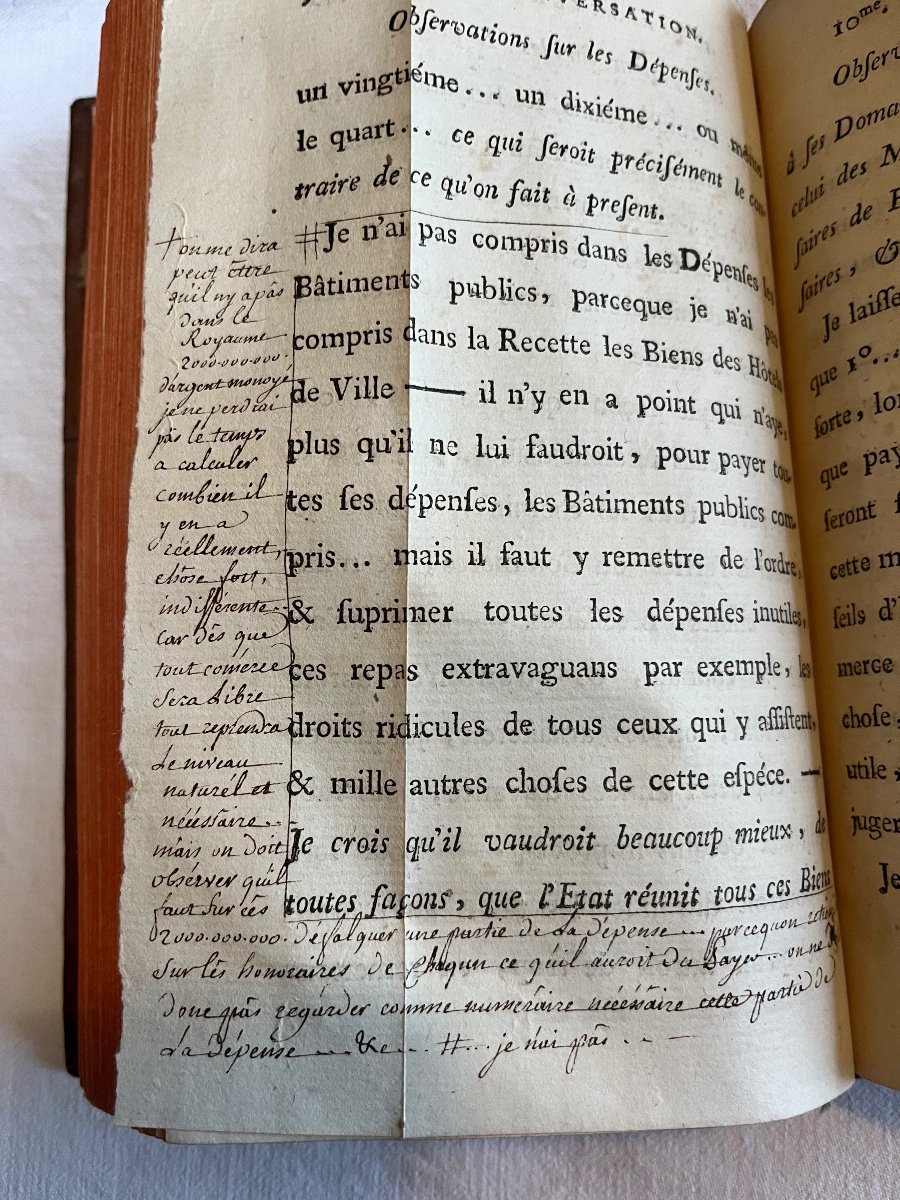 VERSATION.
Obſervations ſur les Dépenſes.
un vingtiéme... un dixiéme... ou même
le quart... ce qui ſeroit préciſément le con-
traire de ce qu'on fait à preſent.
#Je n'ai pas compris dans les Dépenſes les
Bâtiments publics, parceque je n'ai pas
compris dans la Recette les Biens des Hôtels
de Ville — il n'y en a point qui n'aye,
plus qu'il ne lui faudroit, pour payer tou-
tes ſes dépenſes, les Bâtiments publics com-
pris... mais il faut y remettre de l'ordre,
& ſuprimer toutes les dépenſes inutiles,
ces repas extravaguans par exemple, les
droits ridicules de tous ceux qui y aſſiſtent,
& mille autres choſes de cette eſpéce. —
Je crois qu'il vaudroit beaucoup mieux, de
toutes façons, que l'Etat réunit tous ces Biens
† on me dira
peut être
qu'il n'y a pas
dans le
Royaume
2000.000.000.
d'argent monoyé
je ne perdrai
pas le temps
a calculer
combien il
y en a
réellement,
chose fort,
indifférente..
car dès que
tout comérce
sera Libre
tout reprendra
Le niveau
naturél et
nécéssaire...
mais on doit
observer qu'il
faut sur cés
2000.000.000. défalquer une partie de La dépense... parcequ'on
sur lés honoraires de chaqun ce qu'il auroit du Payer... on ne
donc pas regarder comme numéraire nécéssaire cette partie de
La dépense... &c... #... je n'ai pas...
10me.
Obſerv
à ſes Doma
celui des M
ſaires de
ſaires, &
Je laiſſe
que 1º...
ſorte, lor
que pay
ſeront
cette m
ſeils d'
merce
choſe,
utile,
juger
Je